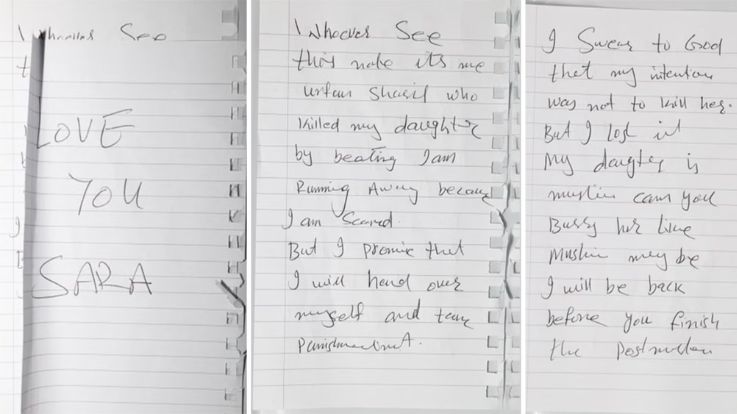 Whoever See
LOVE
YOU
SARA
Whoever See
this note its me
urfan Sharif who
killed my daughter
by beating I am
Running Away because
I am Scared.
But I promise that
I will hand over
myself and take
Punishment.
I Swear to God
that my intention
was not to kill her.
But I lost it
My daughter is
muslim can you
Bury her like
Muslim may be
I will be back
before you finish
the Postmortem